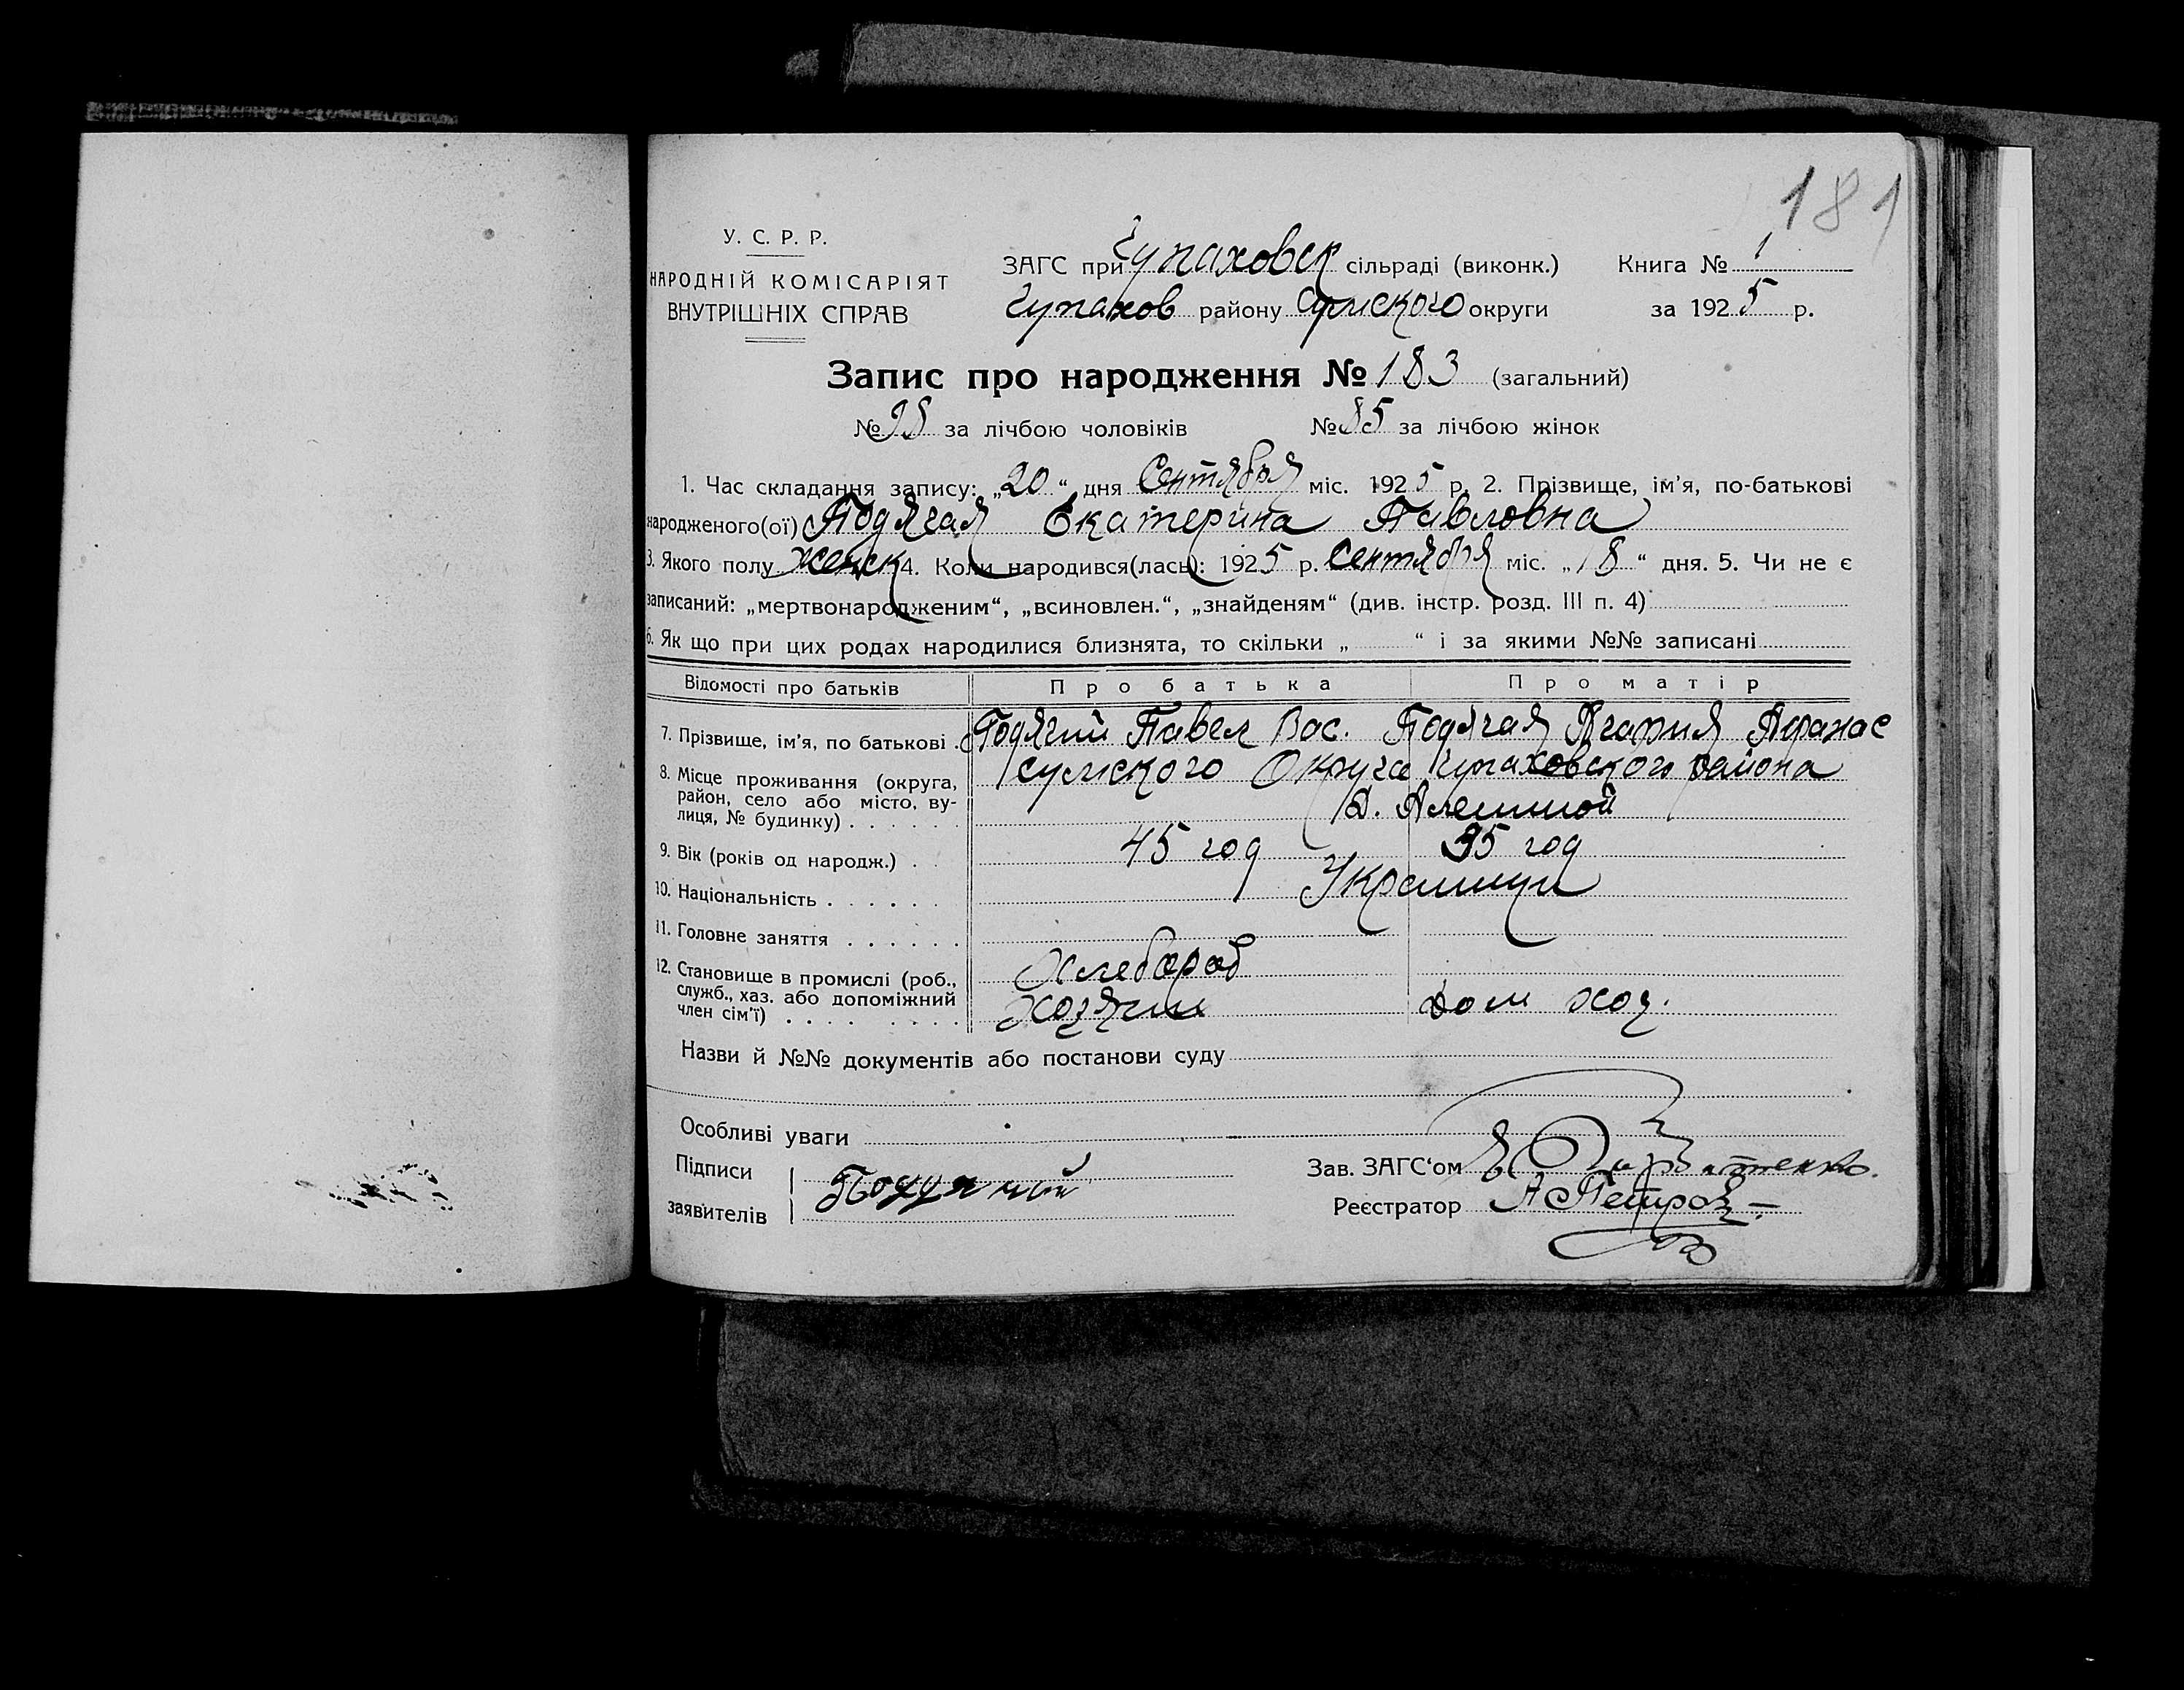 181
У. С. Р. Р.
НАРОДНІЙ КОМІСАРІЯТ
ВНУТРІШНІХ СПРАВ
ЗАГС при Чупаховск сільраді (виконк.) Книга № 1
Чупахов району Сумского округи за 1925 р.
Запис про народження № 183 (загальний)
№ 98 за лічбою чоловіків № 85 за лічбою жінок
1. Час складання запису: „20“ дня Сентября міс. 1925 р. 2. Прізвище, ім’я, по-батькові
народженого(ої) Подячая Екатерина Павловна
3. Якого полу женск 4. Коли народився(лась): 1925 р. Сентября міс. „18“ дня. 5. Чи не є
записаний: „мертвонародженим“, „всиновлен.“, „знайденям“ (див. інстр. розд. III п. 4)
6. Як що при цих родах народилися близнята, то скільки „ “ і за якими №№ записані
Відомості про батьків Про батька Про матір
7. Прізвище, ім’я, по батькові . Подячий Павел Вас. Подячая Агафия Афанас
8. Місце проживання (округа, Сумского Округа Чупаховского района
район, село або місто, ву-
лиця, № будинку) . . . . . . Д. Алешной
9. Вік (років од народж.) . . 45 год 35 год
10. Національність . . . . . . Украинци
11. Головне заняття . . . . . .
Хлебороб
12. Становище в промислі (роб.,
служб., хаз. або допоміжний
член сім’ї) . . . . . . . . Хозяин дом хоз.
Назви й №№ документів або постанови суду
Особливі уваги
Підписи
заявителів
Зав. ЗАГС‘ом
Реєстратор А Петров